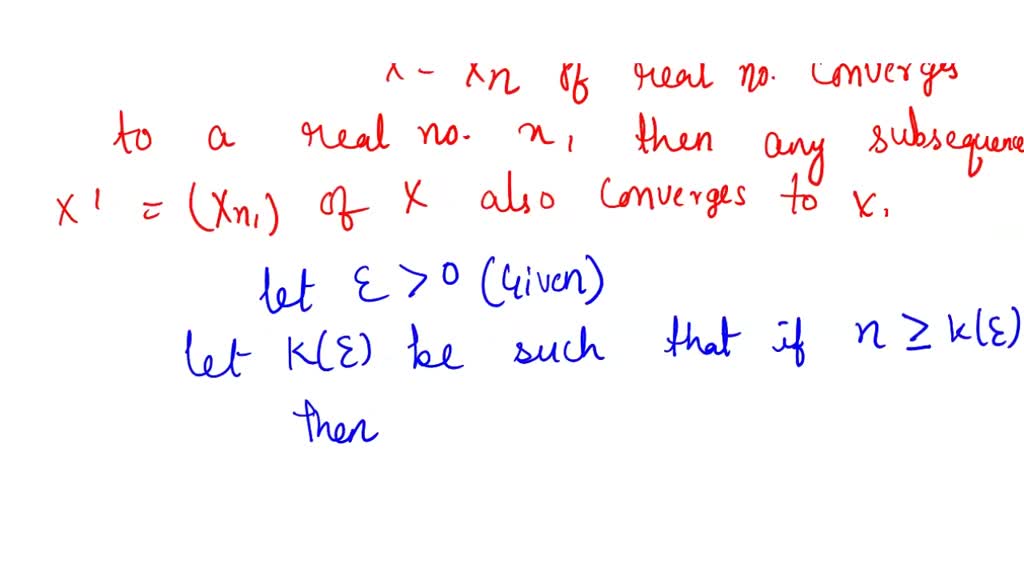 x - xn of real no. converges
to a real no. x, then any subsequence
X' = (Xn,) of X also converges to x.
let ε > 0 (Given)
let K(ε) be such that if n ≥ K(ε)
then